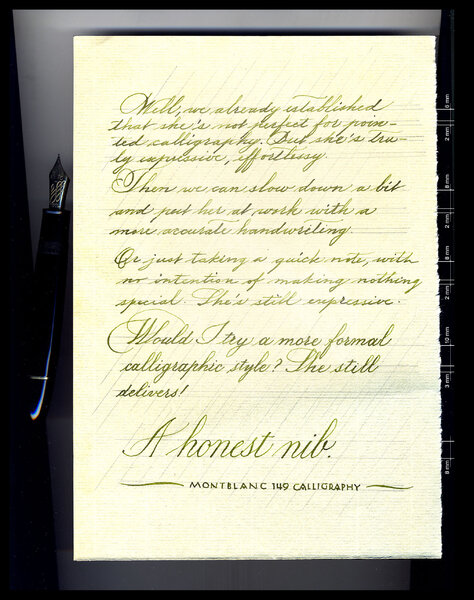 Well, we already established
that she's not perfect for poin-
ted calligraphy. But she's tru-
ly expressive, effortlessy.
Then we can slow down a bit
and put her at work with a
more accurate handwriting.
Or just taking a quick note, with
no intention of making nothing
special. She's still expressive.
Would I try a more formal
calligraphic style? She still
delivers!
A honest nib.
MONTBLANC 149 CALLIGRAPHY
6 mm
2 mm
8 mm
2 mm
8 mm
2 mm
10 mm
3 mm
8 mm